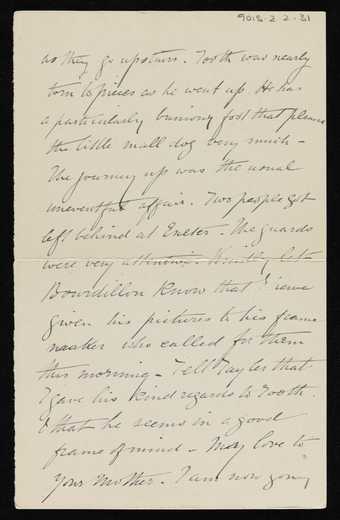 9018.2.2.31
as they go upstairs. Tooth was nearly
torn to pieces as he went up. He has
a particularly buniony foot that pleases
the little mall dog very much –
The journey up was the usual
uneventful affair. Two people got
left behind at Exeter. The guards
were very attentive. Kindly let
Bourdillon know that I have
given his pictures to his frame
maker who called for them
this morning – Tell Tayler that
I gave his kind regards to Tooth.
& that he seems in a good
frame of mind – My love to
your Mother. I am now going